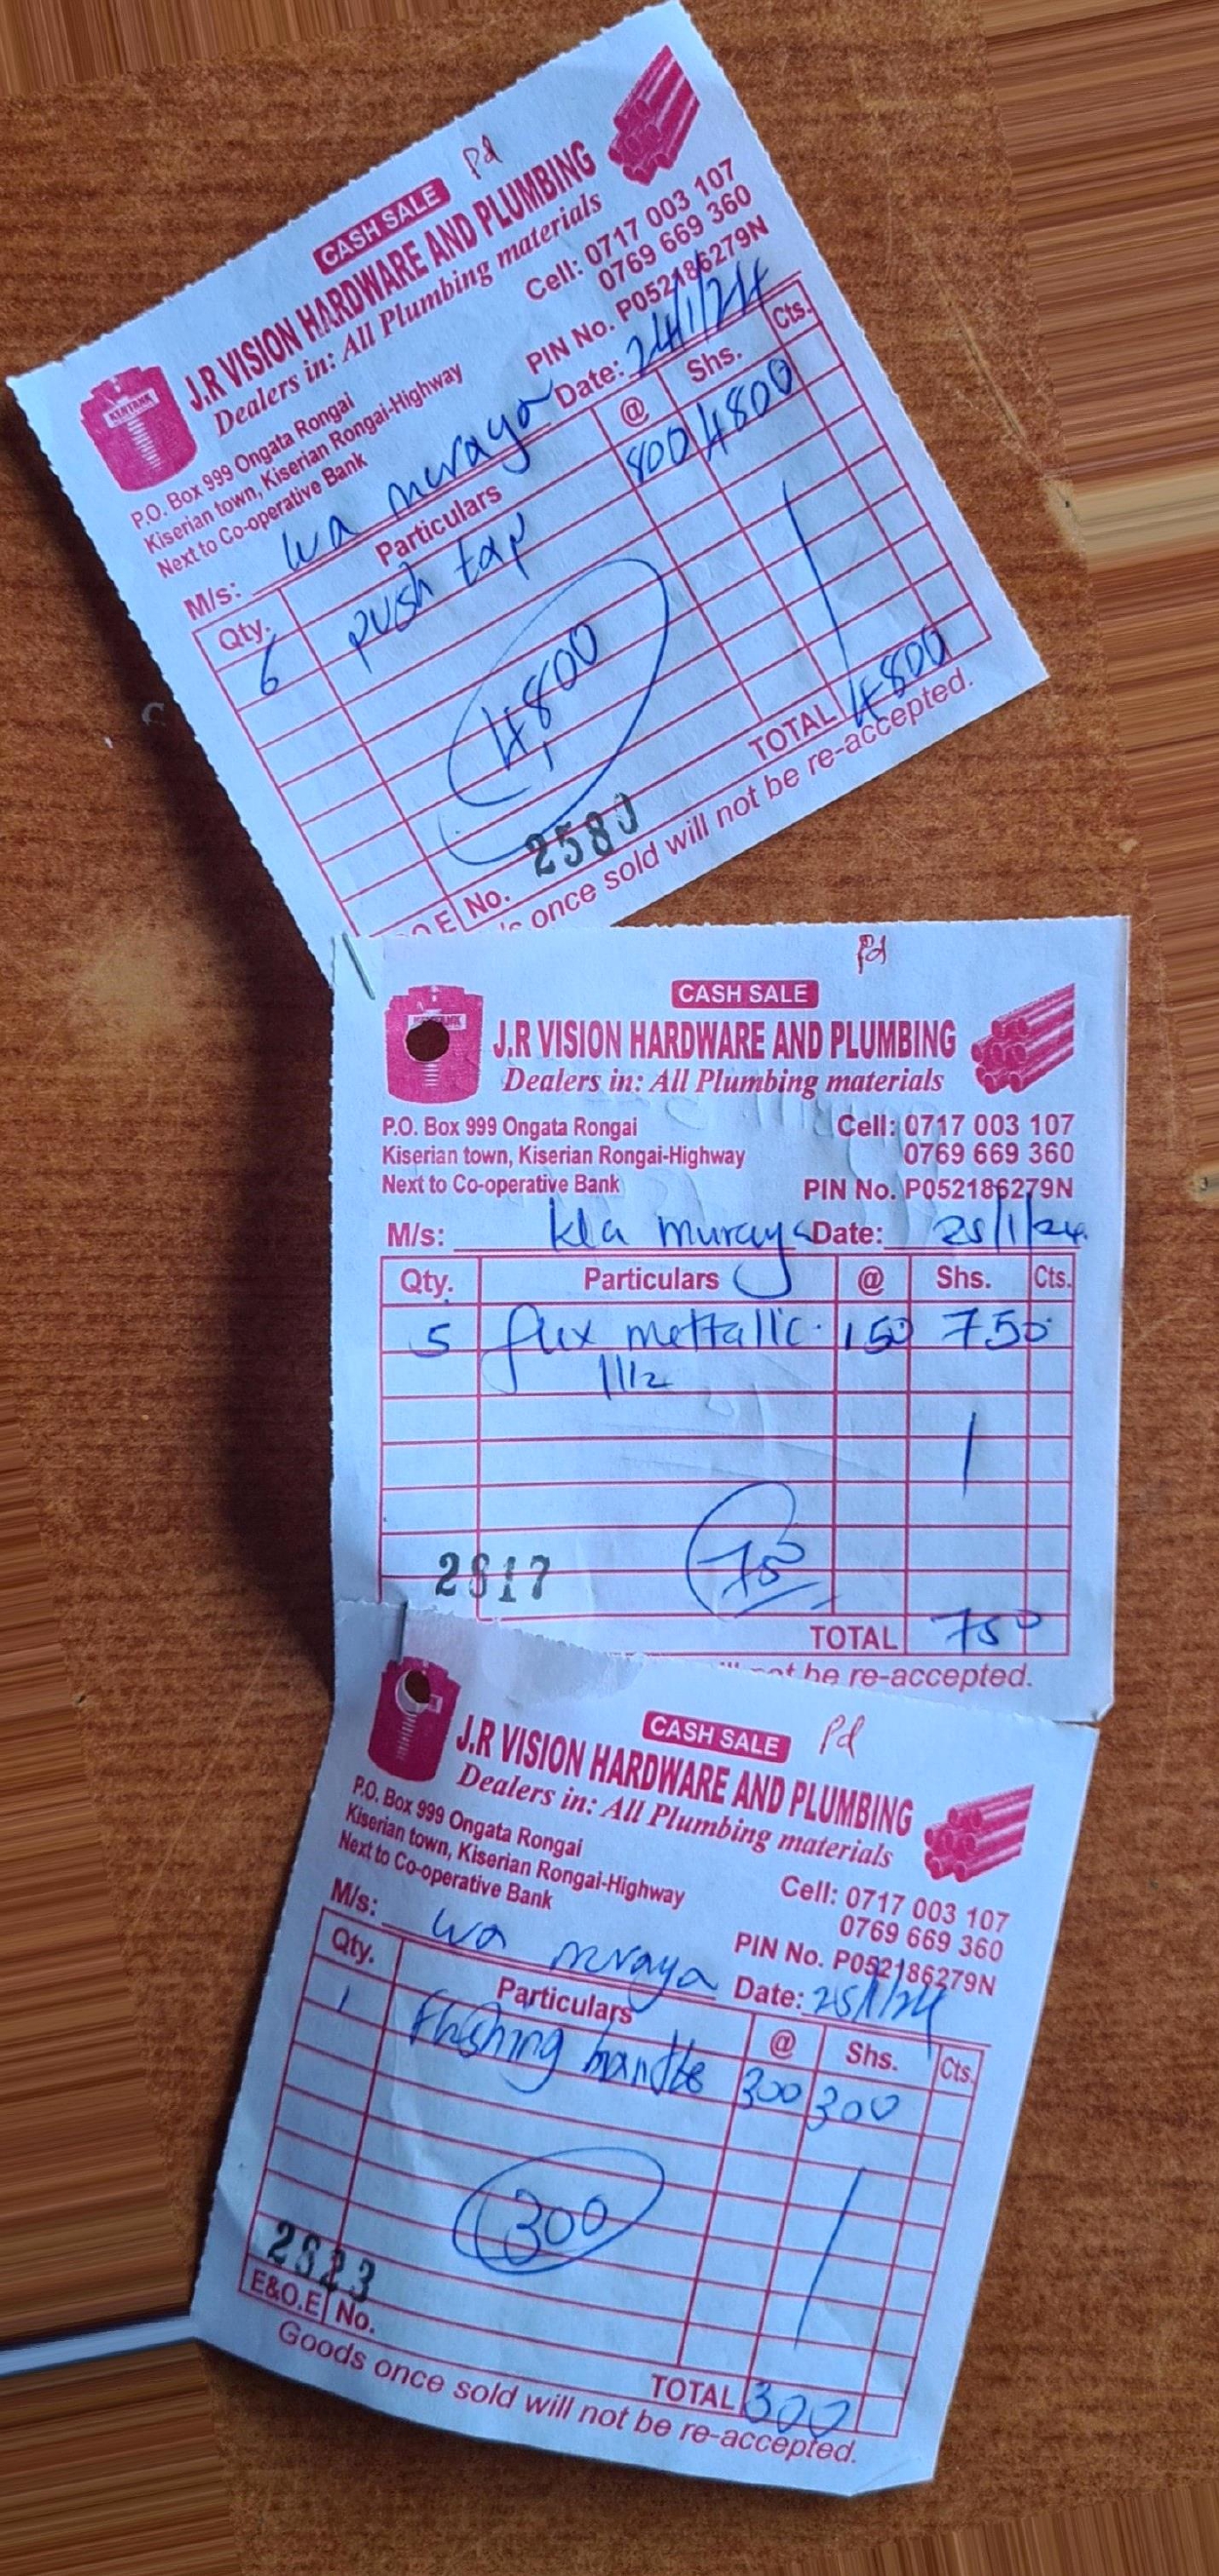 Pd
CASH SALE
J.R VISION HARDWARE AND PLUMBING
Dealers in: All Plumbing materials
P.O. Box 999 Ongata Rongai
Kiserian town, Kiserian Rongai-Highway
Next to Co-operative Bank
Cell: 0717 003 107
0769 669 360
PIN No. P052186279N
M/s: wa muraya Date: 24/1/24
Qty. Particulars @ Shs. Cts.
6 push tap 800 4800
4,800
TOTAL 4800
O.E No. 258
once sold will not be re-accepted.
Pd
CASH SALE
J.R VISION HARDWARE AND PLUMBING
Dealers in: All Plumbing materials
P.O. Box 999 Ongata Rongai
Kiserian town, Kiserian Rongai-Highway
Next to Co-operative Bank
Cell: 0717 003 107
0769 669 360
PIN No. P052186279N
M/s: muraya Date: 25/1/24
Qty. Particulars @ Shs. Cts.
5 flux mettallic 150 750
750
2617
TOTAL 750
not be re-accepted.
CASH SALE Pd
J.R VISION HARDWARE AND PLUMBING
Dealers in: All Plumbing materials
P.O. Box 999 Ongata Rongai
Kiserian town, Kiserian Rongai-Highway
Next to Co-operative Bank
Cell: 0717 003 107
0769 669 360
PIN No. P052186279N
M/s: wa muraya Date: 25/1/24
Qty. Particulars @ Shs. Cts.
1 flushing handle 300 300
300
2623
E&O.E No.
TOTAL 300
Goods once sold will not be re-accepted.